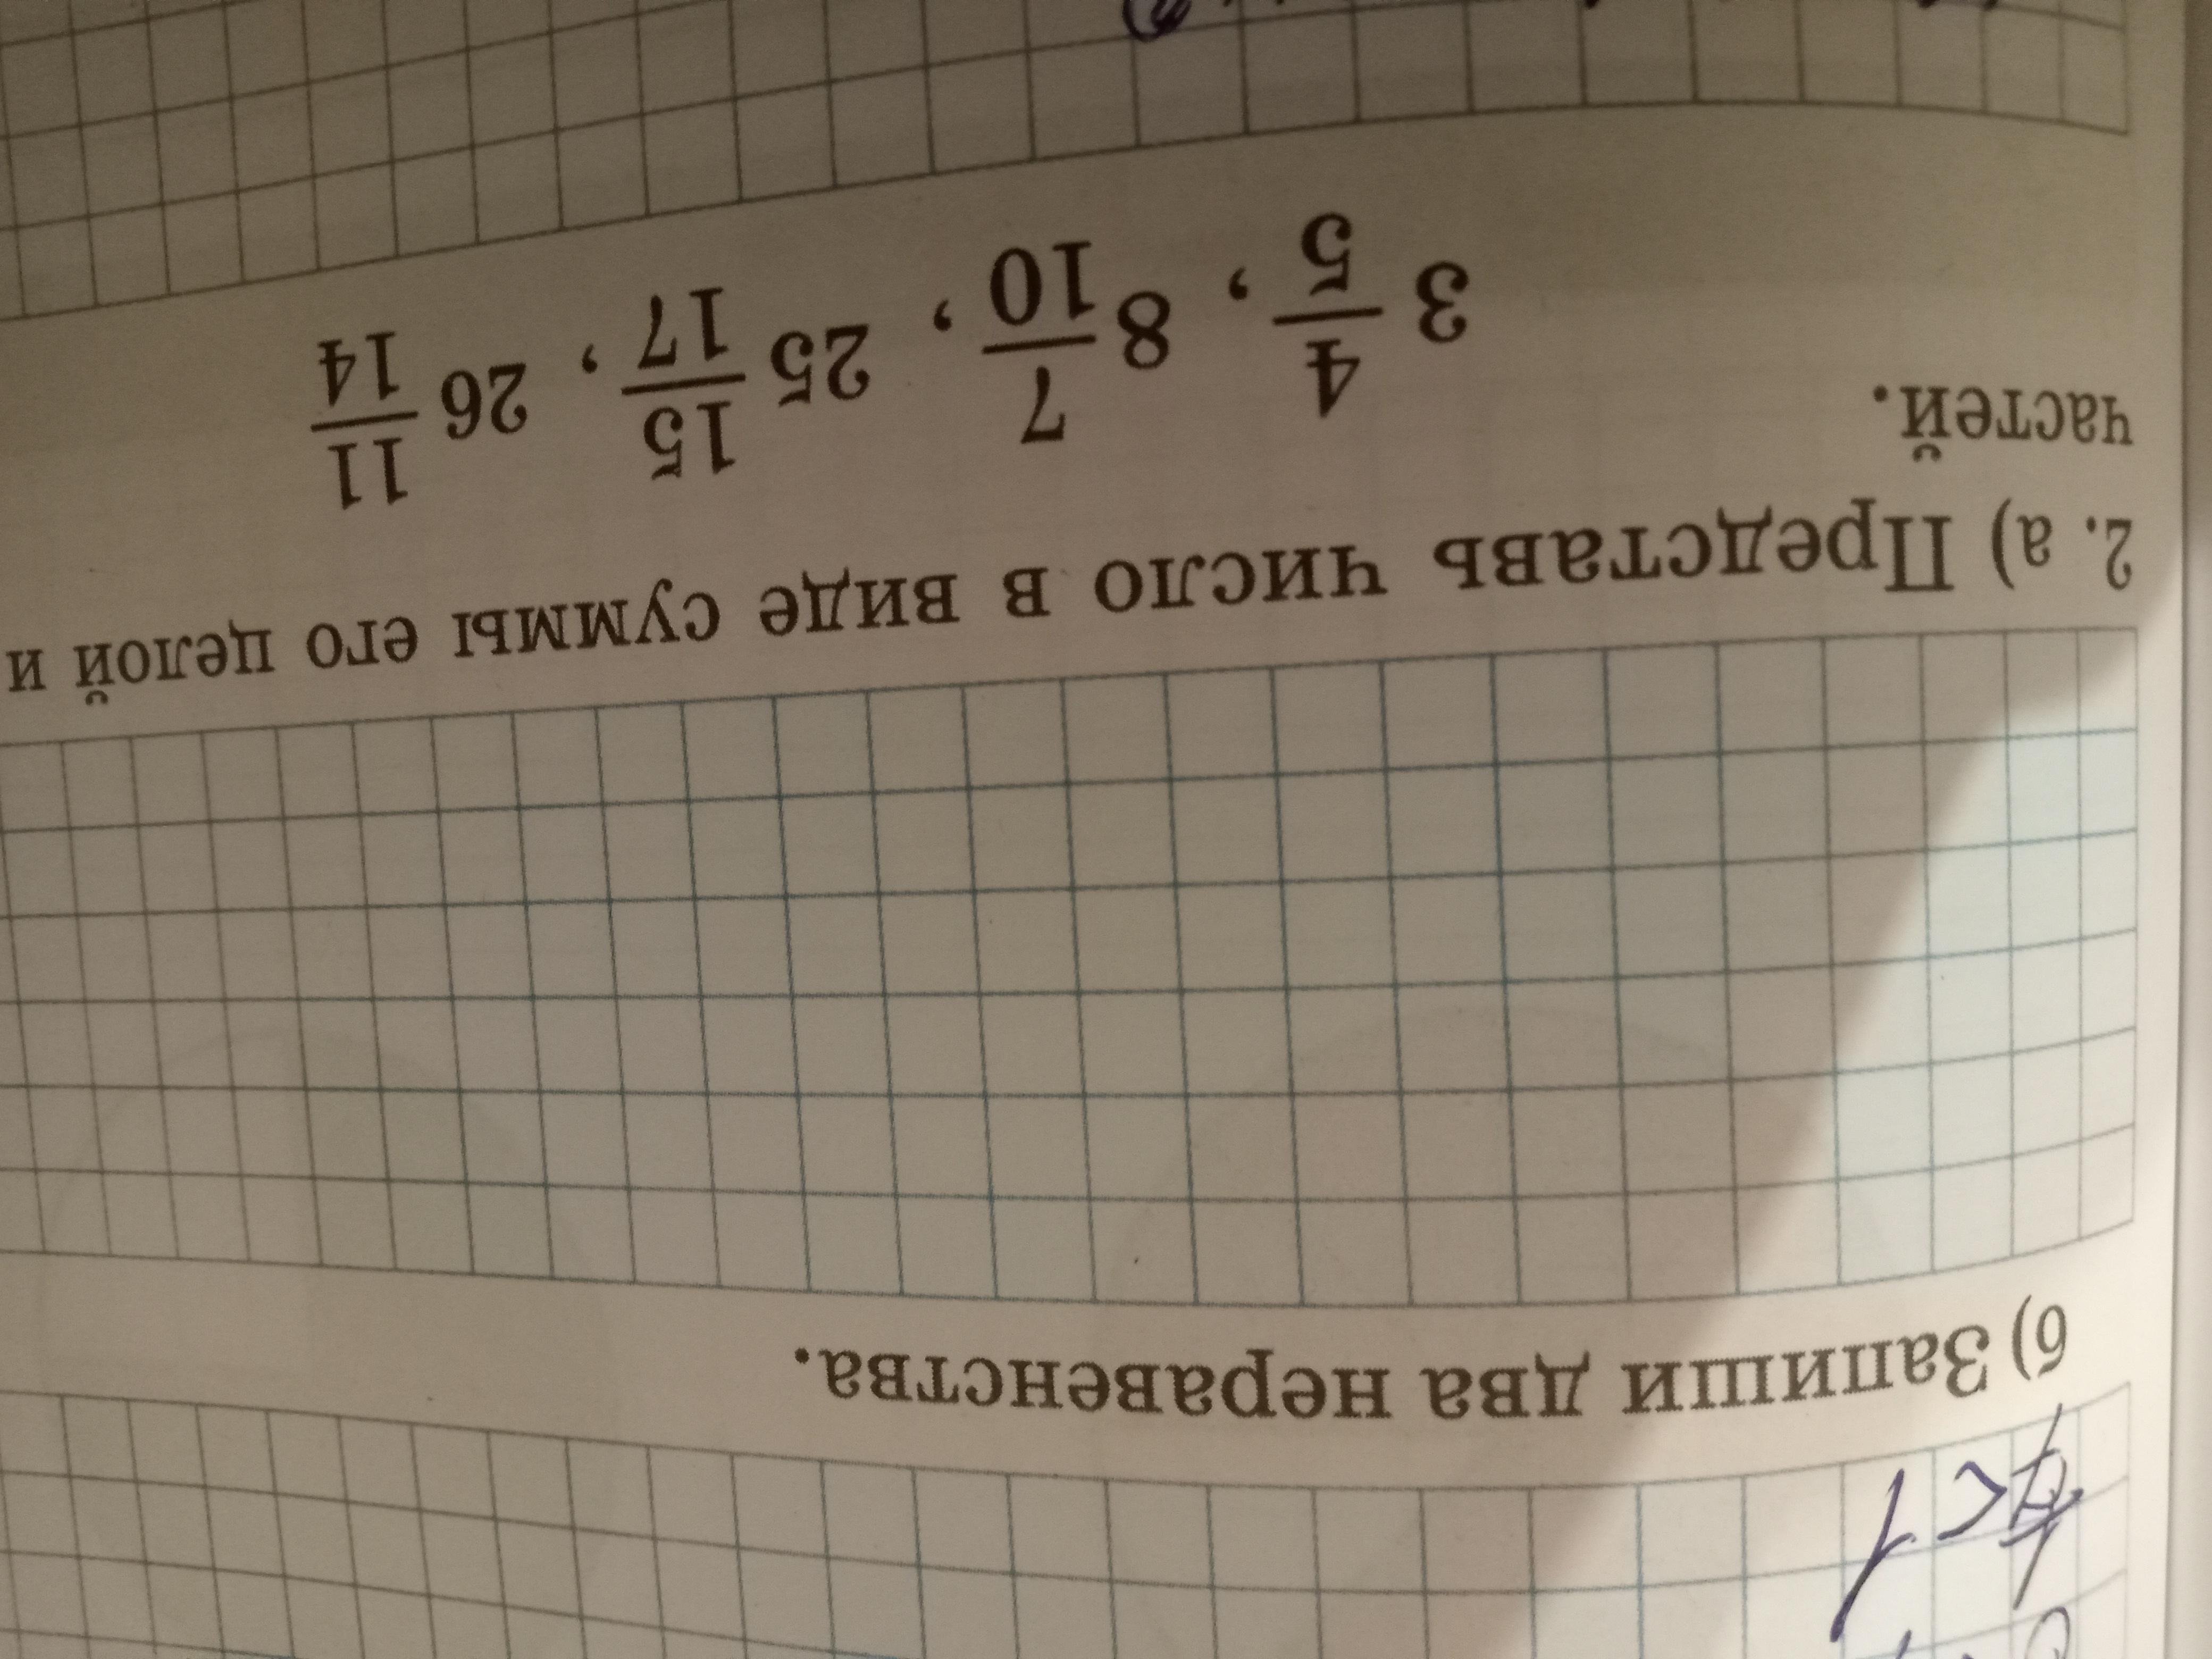 б) Запиши два неравенства.
2. а) Представь число в виде суммы его целой и
частей.
3 4/5, 8 7/10, 25 15/17, 26 11/14